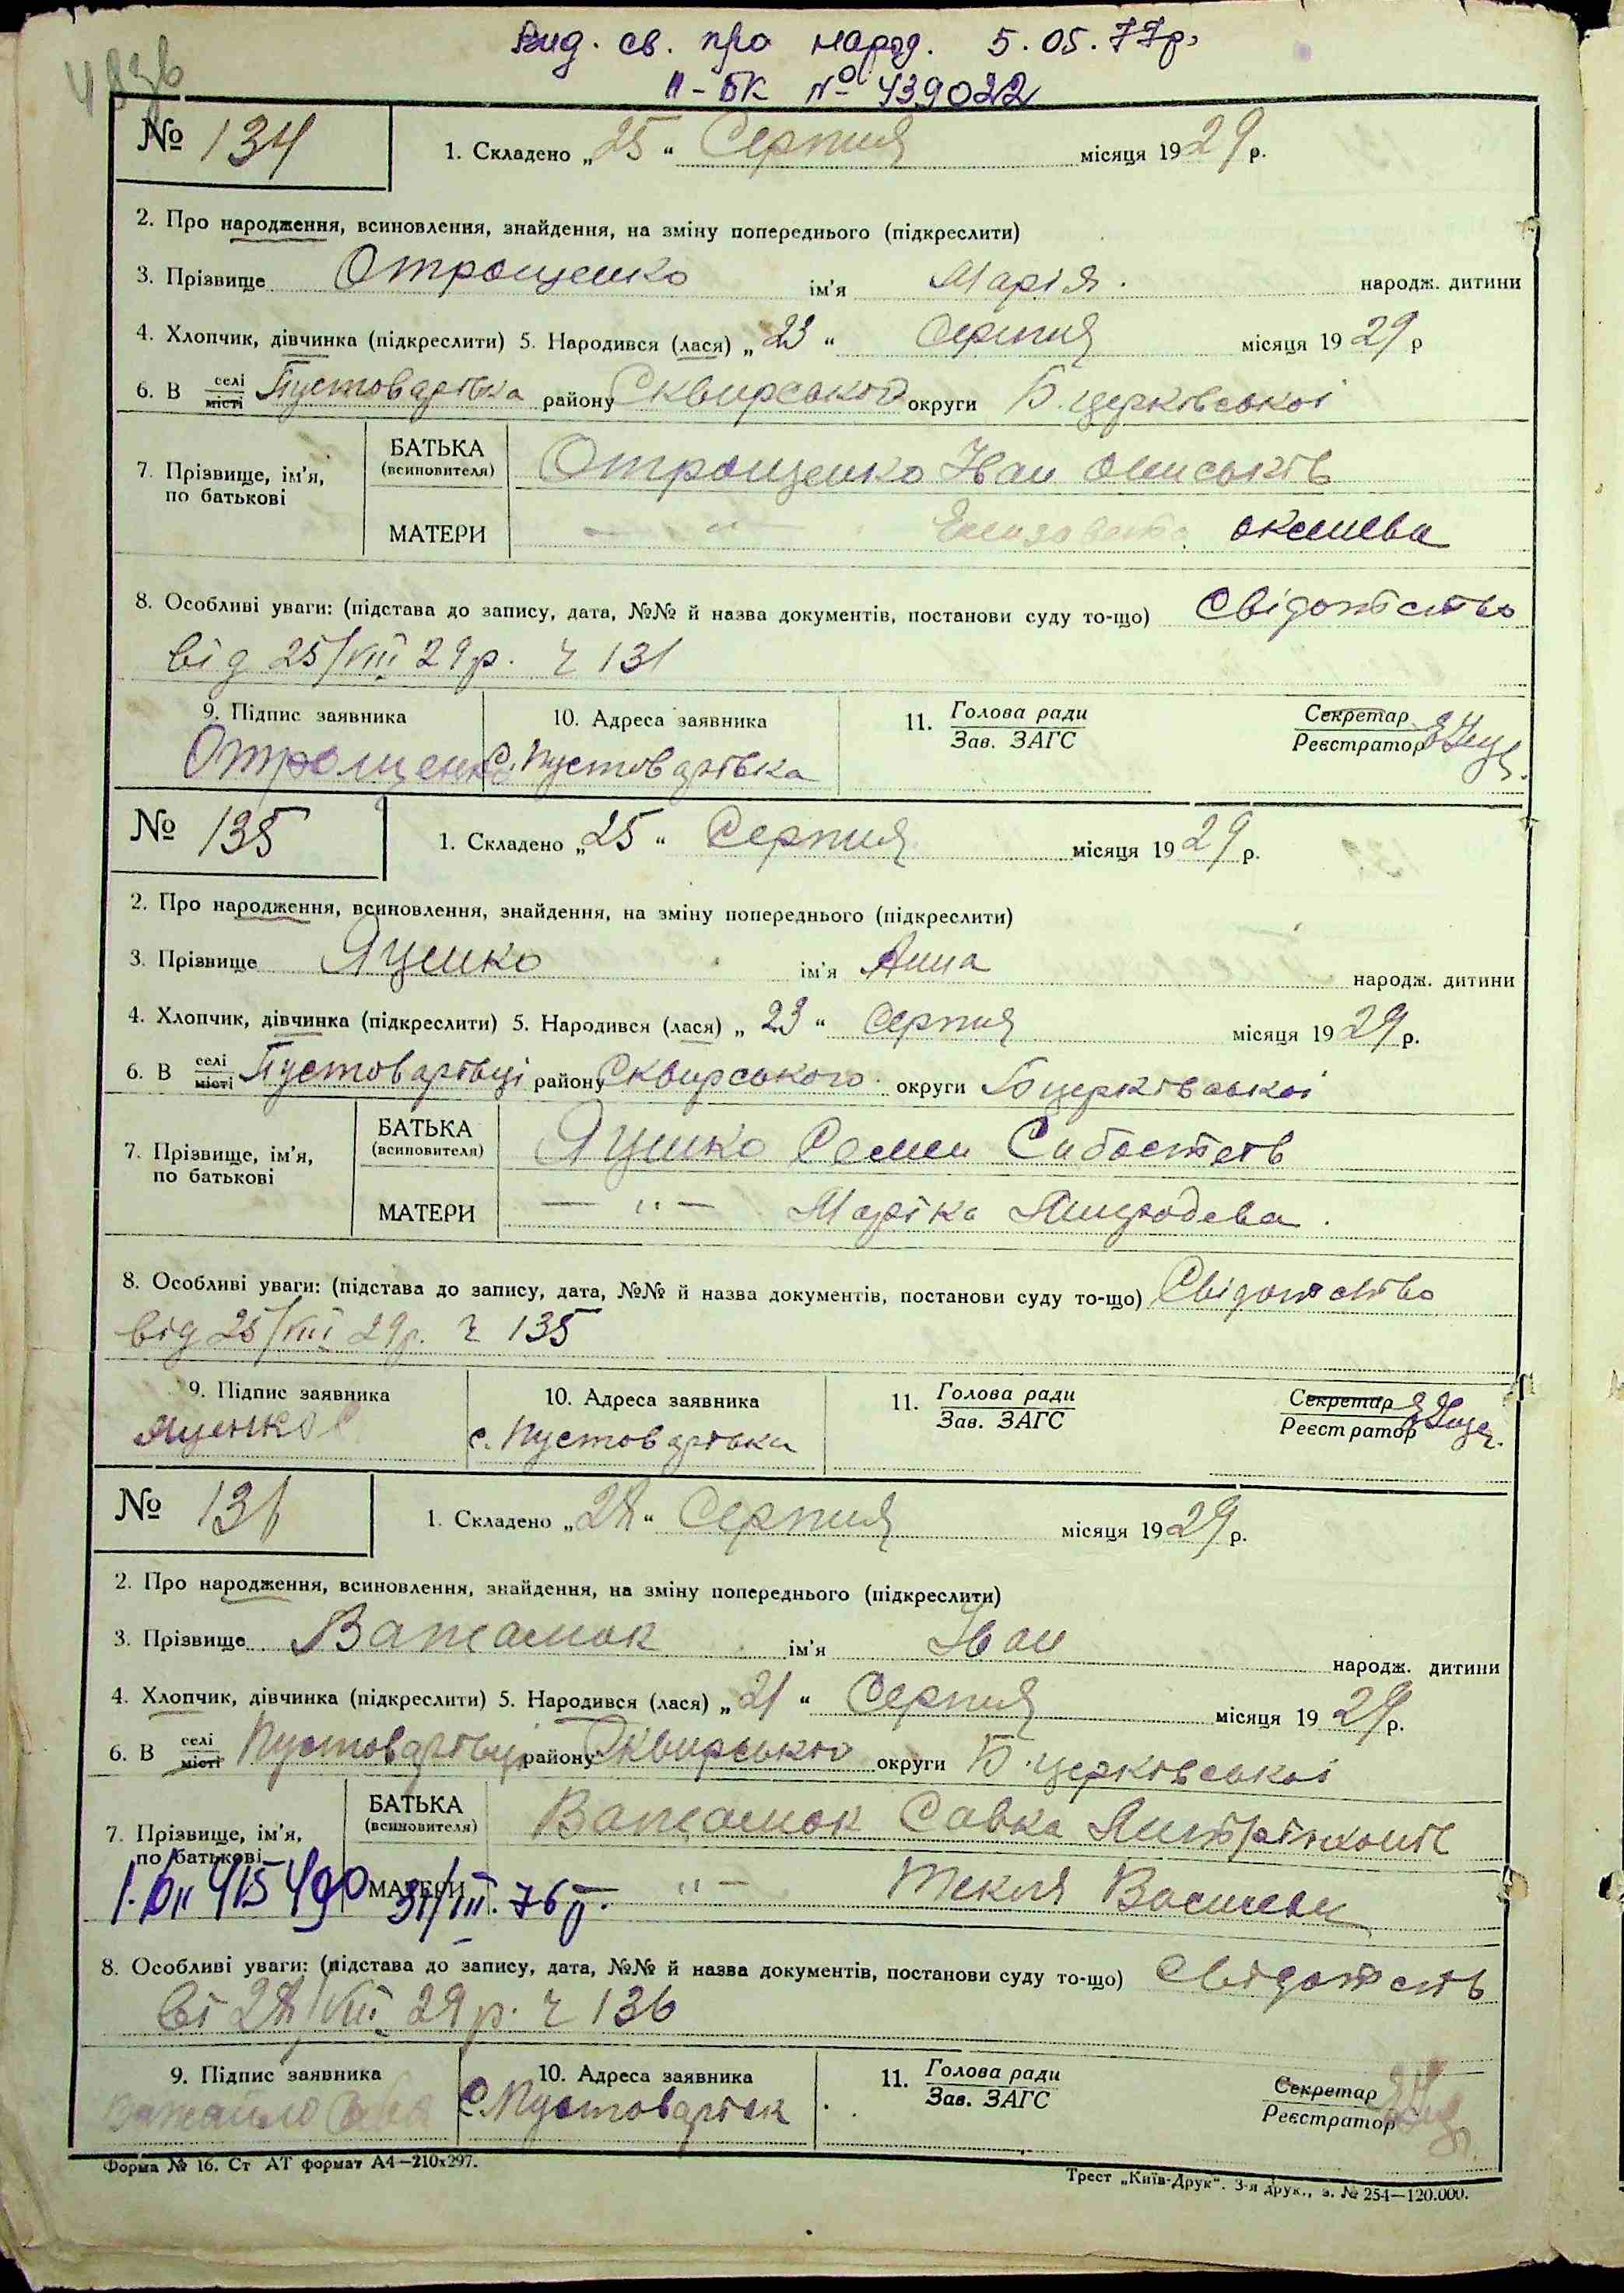 Вид. св. про народ. 5.05.77р.
II-БК № 439022
№ 134
1. Складено „25“ Серпня місяця 1929 р.
2. Про народження, всиновлення, знайдення, на зміну попереднього (підкреслити)
3. Прізвище Отрощенко ім'я Марія. народж. дитини
4. Хлопчик, дівчинка (підкреслити) 5. Народився (лася) „23“ Серпня місяця 1929 р
6. В селі місті Пустоварівка району Сквирського округи Б. церківської
7. Прізвище, ім'я, по батькові
БАТЬКА (всиновителя) Отрощенко Іван
МАТЕРИ — „ — Єлизавета
8. Особливі уваги: (підстава до запису, дата, №№ й назва документів, постанови суду то-що) Свідотство
від 25/VIII 29 р. ч 131
9. Підпис заявника 10. Адреса заявника 11. Голова ради Зав. ЗАГС Секретар Реєстратор
Отрощенко с. Пустоварівка
№ 135
1. Складено „25“ Серпня місяця 1929 р.
2. Про народження, всиновлення, знайдення, на зміну попереднього (підкреслити)
3. Прізвище Яценко ім'я Анна народж. дитини
4. Хлопчик, дівчинка (підкреслити) 5. Народився (лася) „23“ Серпня місяця 1929 р.
6. В селі місті Пустоварівці району Сквирського округи Б церківської
7. Прізвище, ім'я, по батькові
БАТЬКА (всиновителя) Яценко Семен
МАТЕРИ — „ — Марійка
8. Особливі уваги: (підстава до запису, дата, №№ й назва документів, постанови суду то-що) Свідотство
від 25/VIII 29 р. ч 135
9. Підпис заявника 10. Адреса заявника 11. Голова ради Зав. ЗАГС Секретар Реєстратор
Яценко с. Пустоварівка
№ 136
1. Складено „28“ Серпня місяця 1929 р.
2. Про народження, всиновлення, знайдення, на зміну попереднього (підкреслити)
3. Прізвище ім'я Іван народж. дитини
4. Хлопчик, дівчинка (підкреслити) 5. Народився (лася) „21“ Серпня місяця 1929 р.
6. В селі місті Пустоварівці району Сквирського округи Б. церківської
7. Прізвище, ім'я, по батькові
БАТЬКА (всиновителя) Савка
МАТЕРИ „ — Текля Василева
415490 31/III. 76 р.
8. Особливі уваги: (підстава до запису, дата, №№ й назва документів, постанови суду то-що) Свідотств
ві 28/VIII 29 р. ч 136
9. Підпис заявника 10. Адреса заявника 11. Голова ради Зав. ЗАГС Секретар Реєстратор
с. Пустоварівк
Форма № 16. Ст АТ формат А4—210х297.
Трест „Київ-Друк“. 3-я друк., з. № 254—120.000.